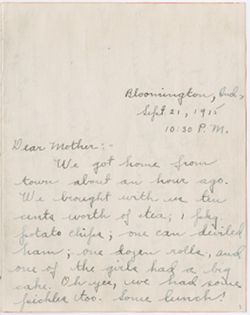 Bloomington, Ind.
Sept. 21, 1915
10:30 P.M.
Dear Mother:-
We got home from
town about an hour ago.
We brought with us ten
cents worth of tea; 1 pkg.
potato chips; one can diviled
ham; one dozen rolls, and
one of the girls had a big
cake. Oh yes, we had some
pickles too. Some lunch!